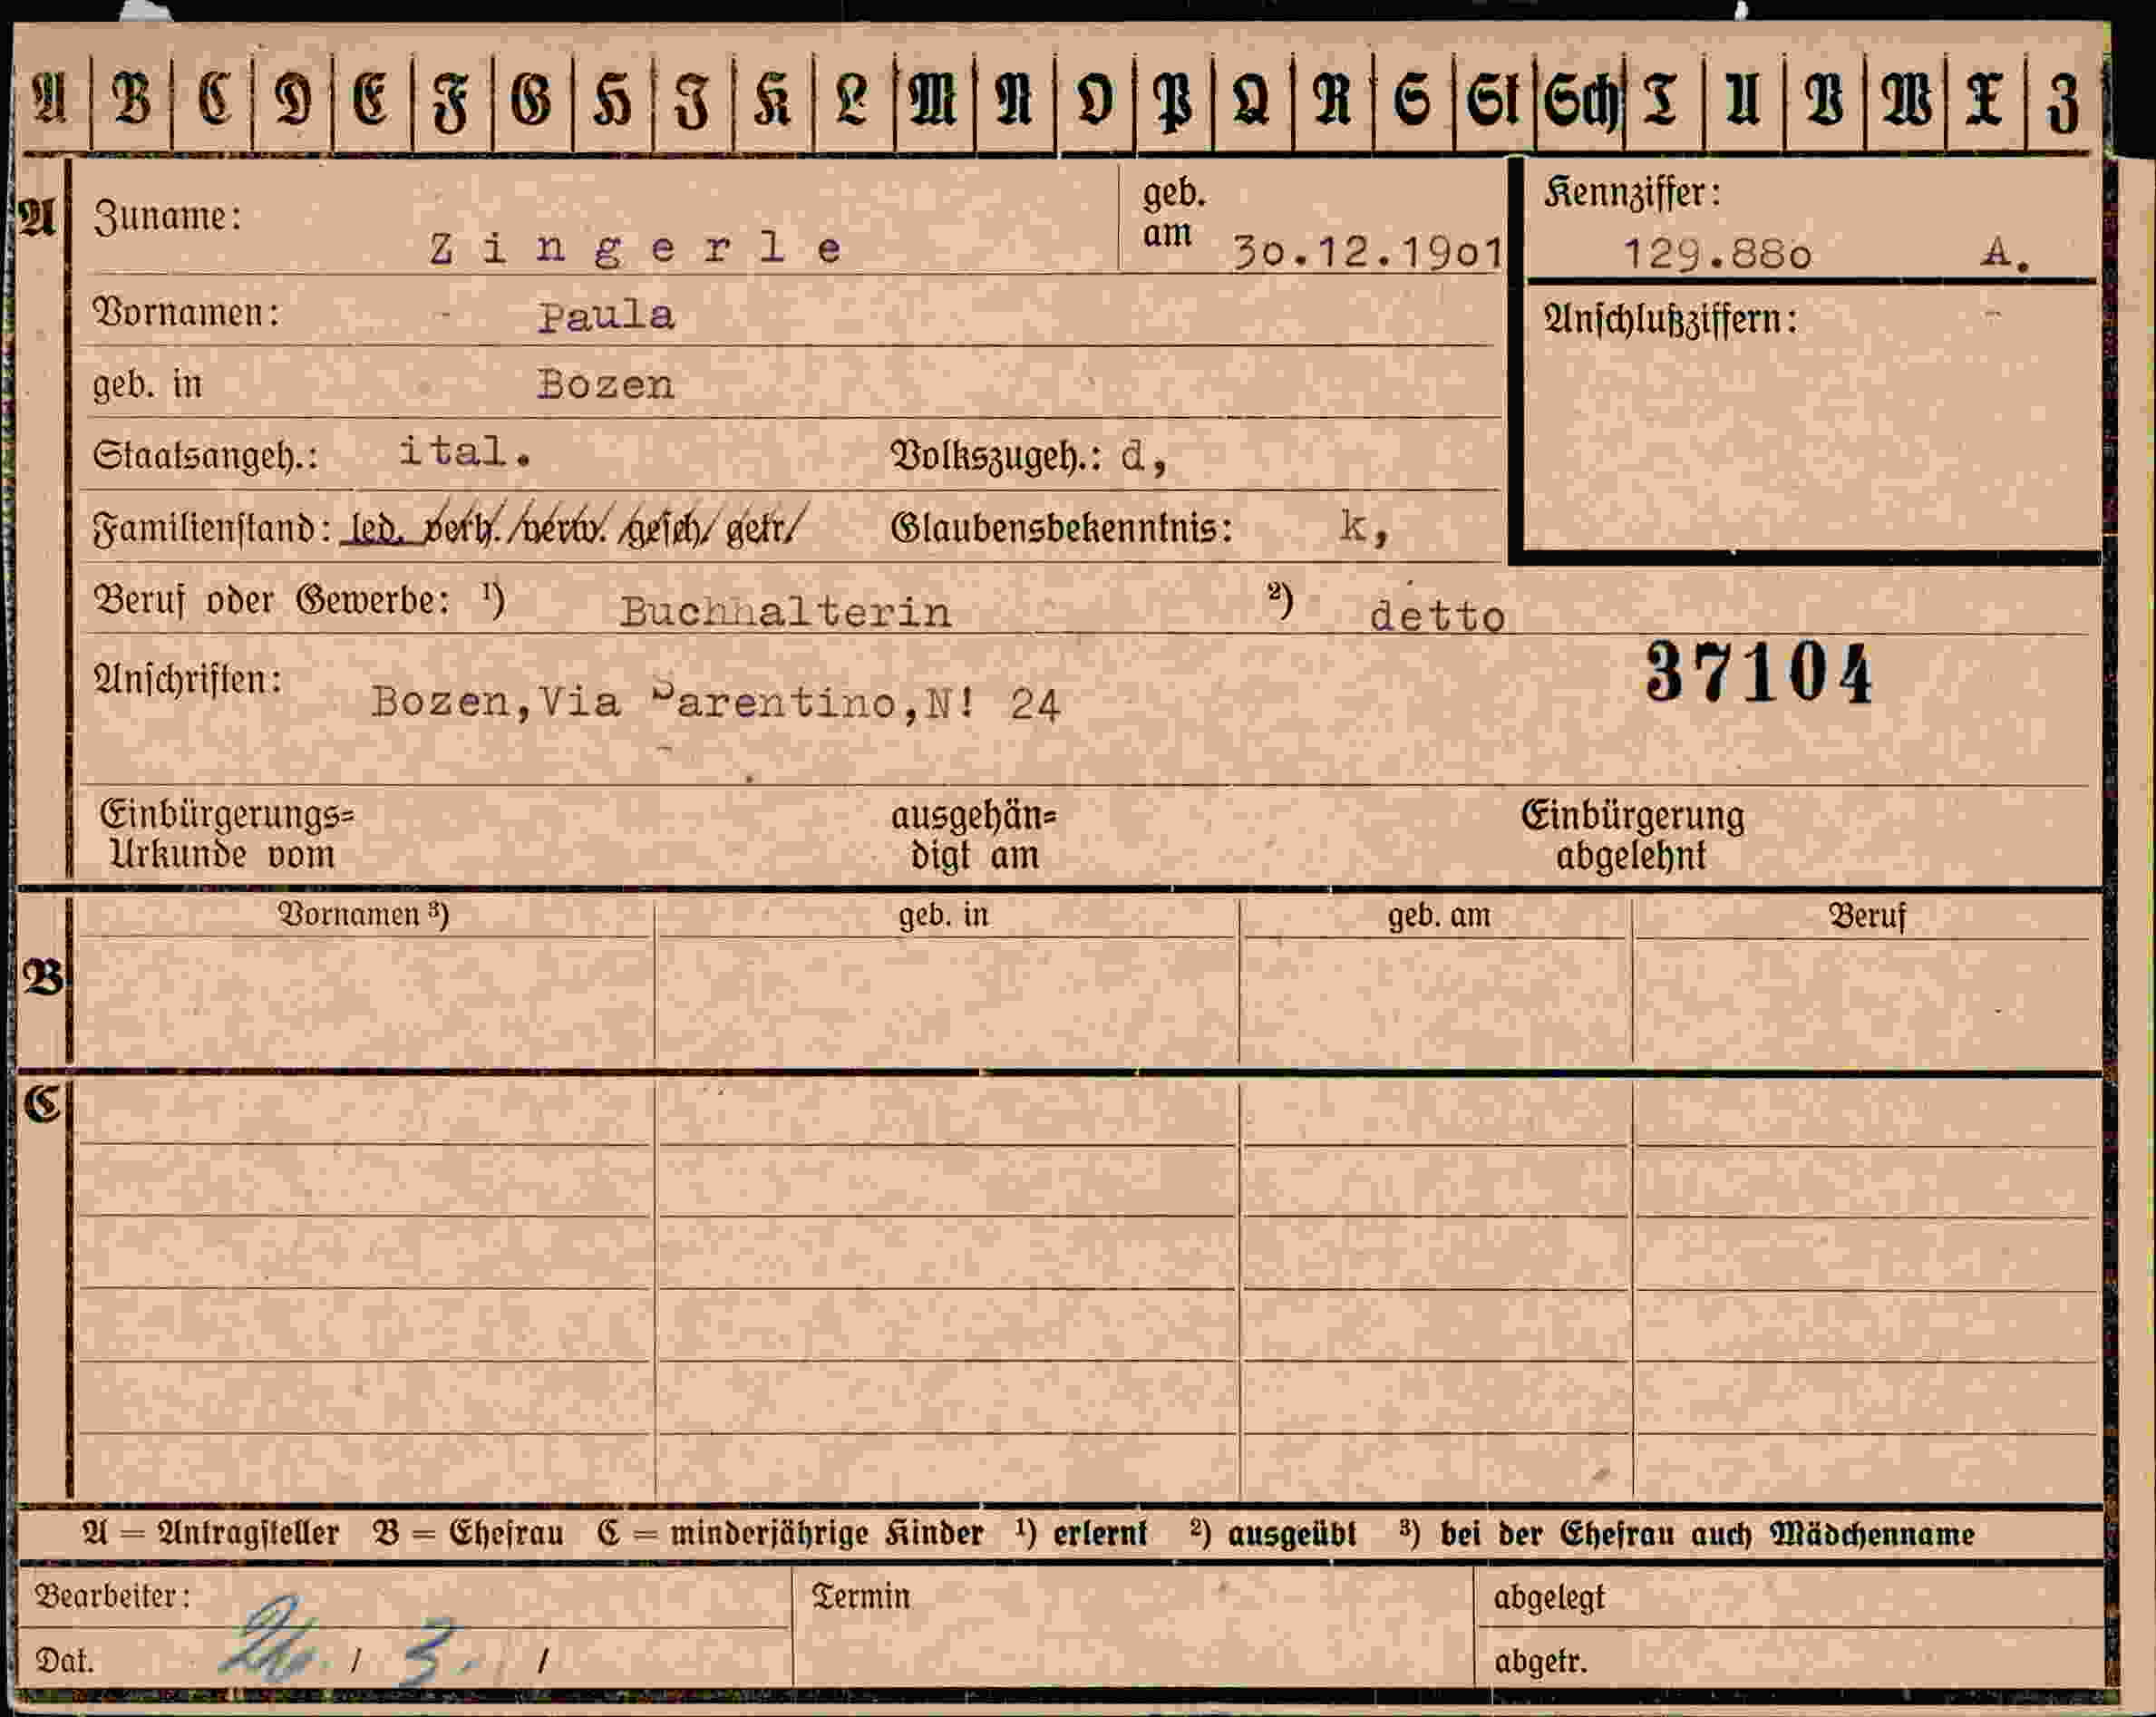 A B C D E F G H I K L M N O P Q R S St Sch T U V W X Z
A Zuname: Zingerle geb. am 30.12.1901 Kennziffer: 129.880 A.
Vornamen: Paula Anschlußziffern:
geb. in Bozen
Staatsangeh.: ital. Volkszugeh.: d,
Familienstand: led. verh. verw. gesch. getr. Glaubensbekenntnis: k,
Beruf oder Gewerbe: ¹) Buchhalterin ²) detto
37104
Anschriften: Bozen,Via Parentino,N! 24
Einbürgerungs= ausgehän= Einbürgerung
Urkunde vom digt am abgelehnt
Vornamen ³) geb. in geb. am Beruf
B
C
A = Antragsteller B = Ehefrau C = minderjährige Kinder ¹) erlernt ²) ausgeübt ³) bei der Ehefrau auch Mädchenname
Bearbeiter: Termin abgelegt
Dat. / 3. / abgetr.